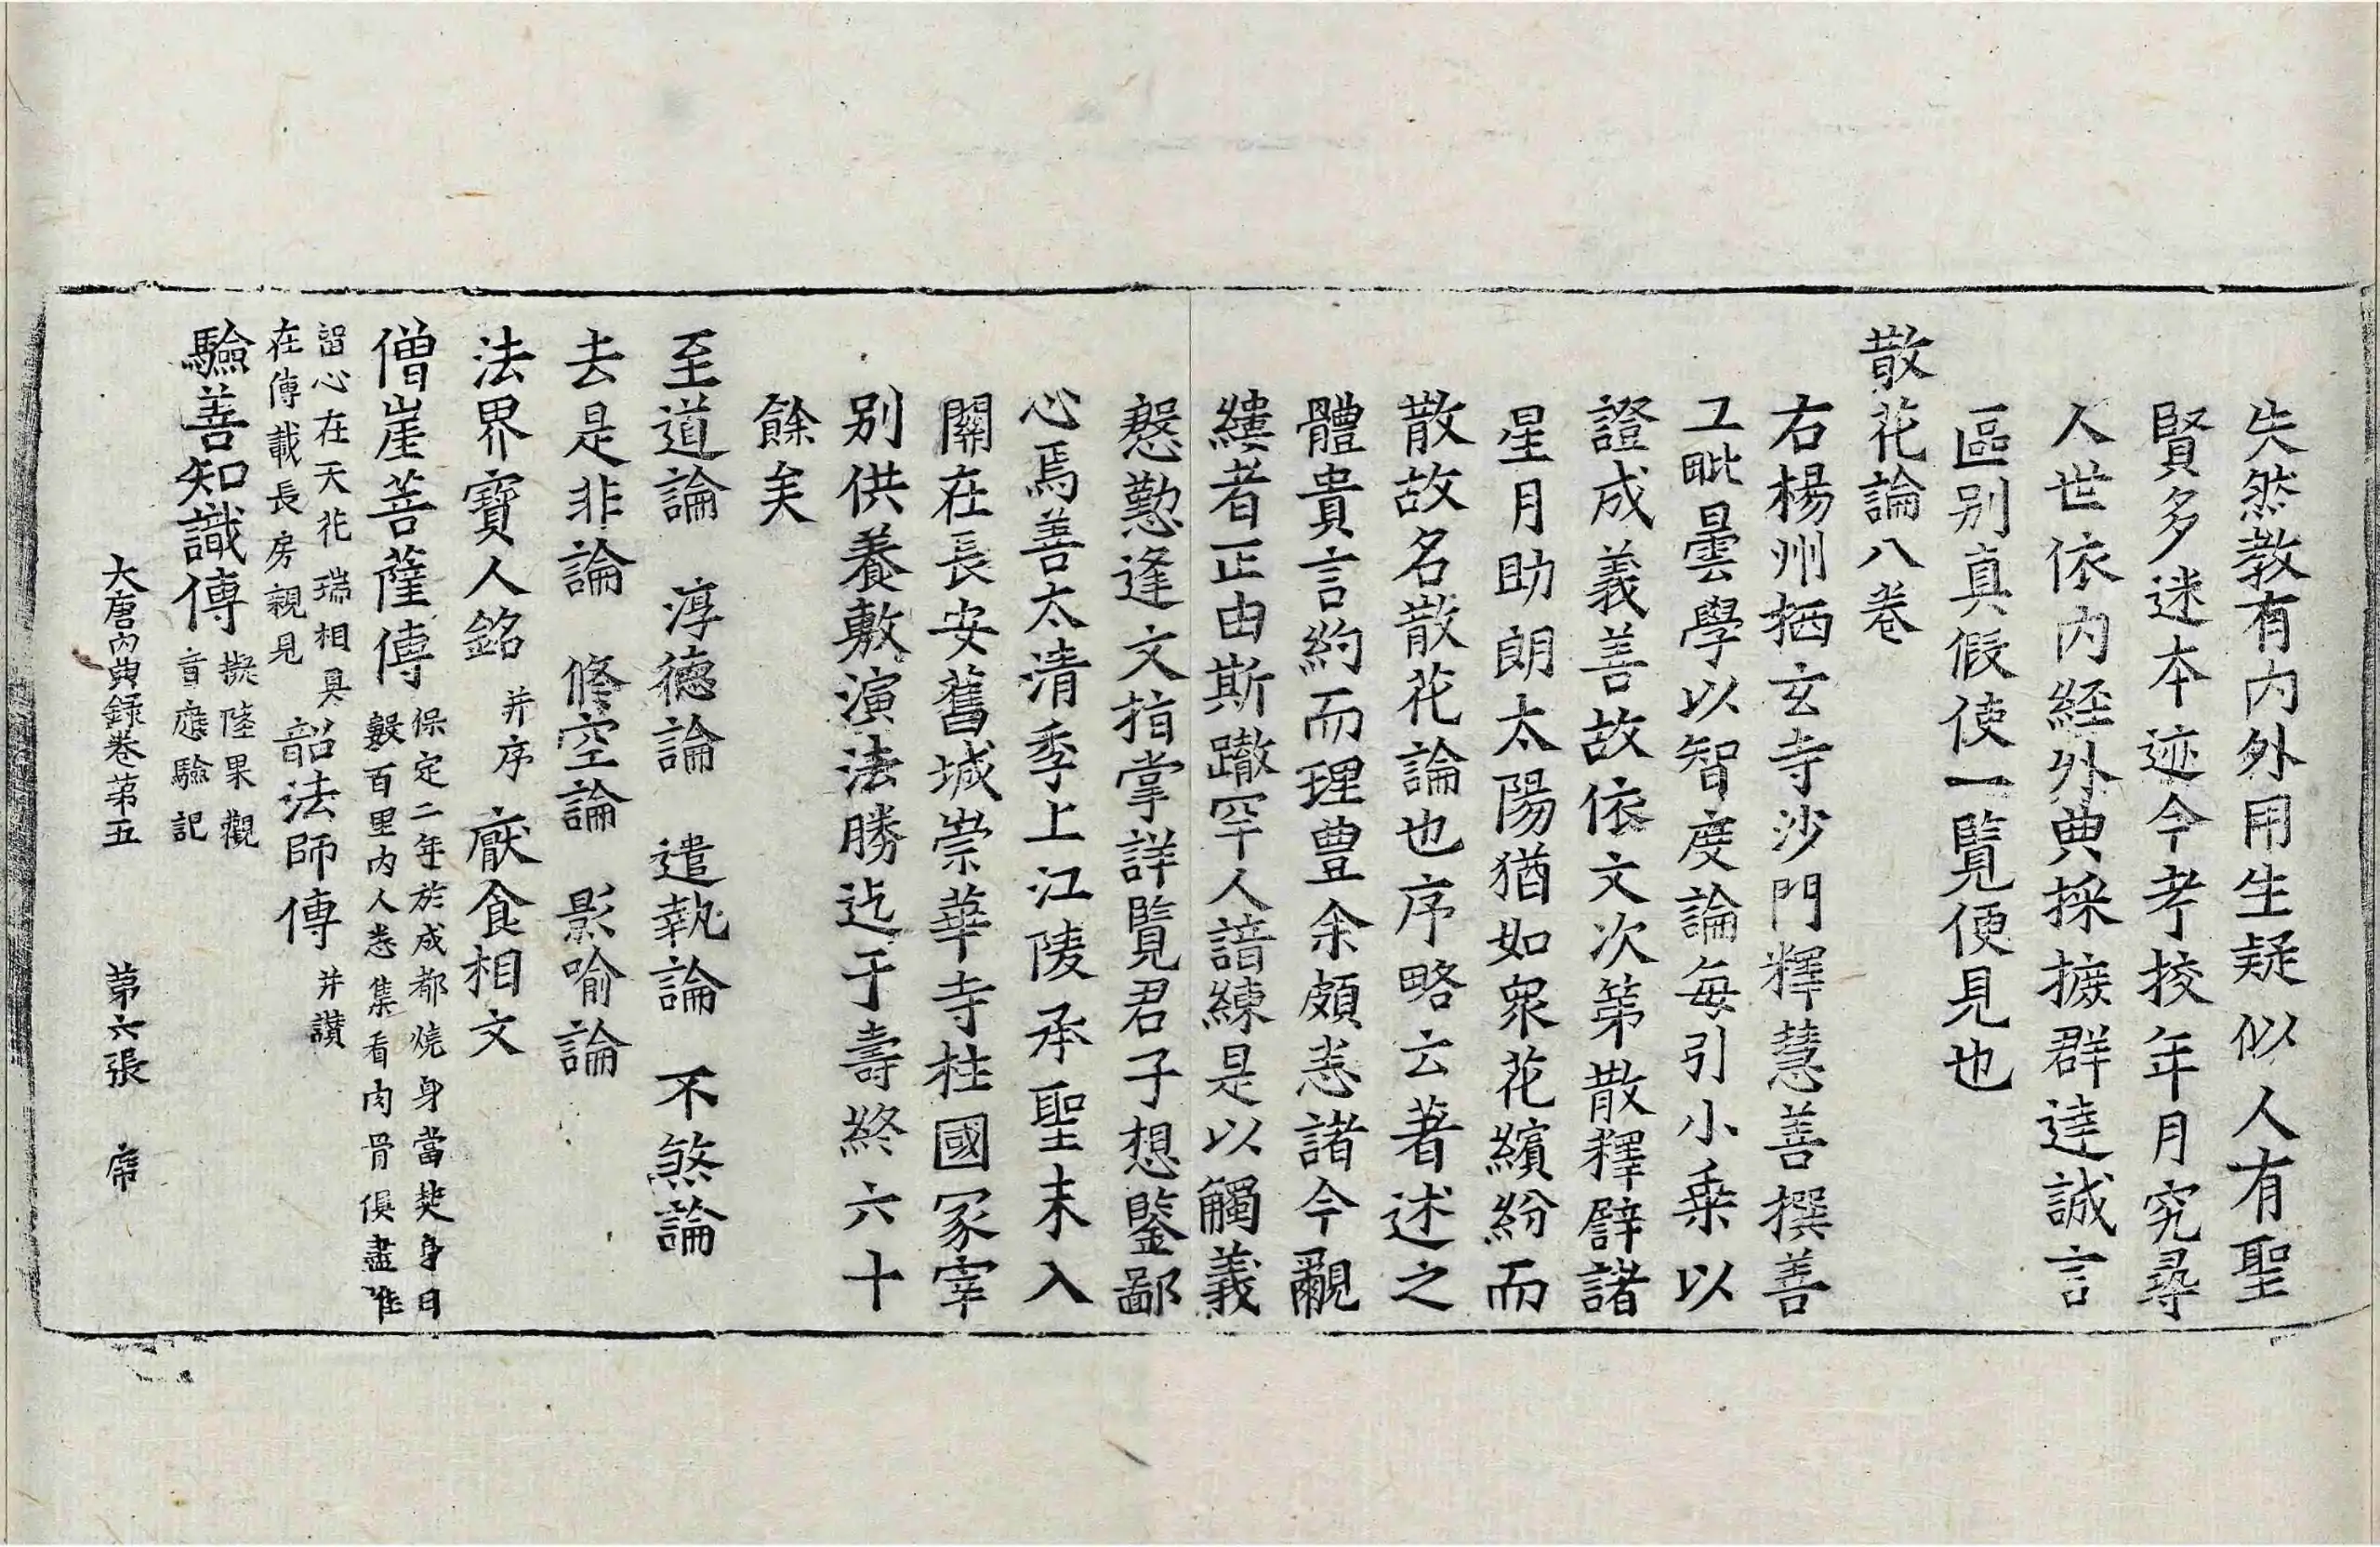 失然教有内外用生疑似人有聖
賢多迷本迹今考挍年月究尋
人世依内經外典採摭群達誠言
區别真假使一覧便見也
散花論八卷
右楊州栖玄寺沙門釋慧善撰善
工毗曇學以智度論每引小乗以
證成義善故依文次第散釋譬諸
星月助朗太陽猶如衆花繽紛而
散故名散花論也序略云著述之
體貴言約而理豊余頗悉諸今覼
縷者正由斯轍罕人諳練是以觸義
慇懃逢文指掌詳覧君子想鑒鄙
心焉善太清季上江陵承聖末入
關在長安舊城崇華寺柱國冢宰
别供養敷演法勝迄于壽終六十
餘矣
至道論 淳德論 遣執論 不煞論
去是非論 修空論 影喻論
法界寶人銘 并序 厭食相文
僧崖菩薩傳 保定二年於成都燒身當焚身日
數百里内人悉集看肉骨俱盡唯
留心在天花瑞相具
在傳載長房親見 韶法師傳 并讃
驗善知識傳 擬陸果觀
音應驗記
大唐内典録卷第五 第六張 席